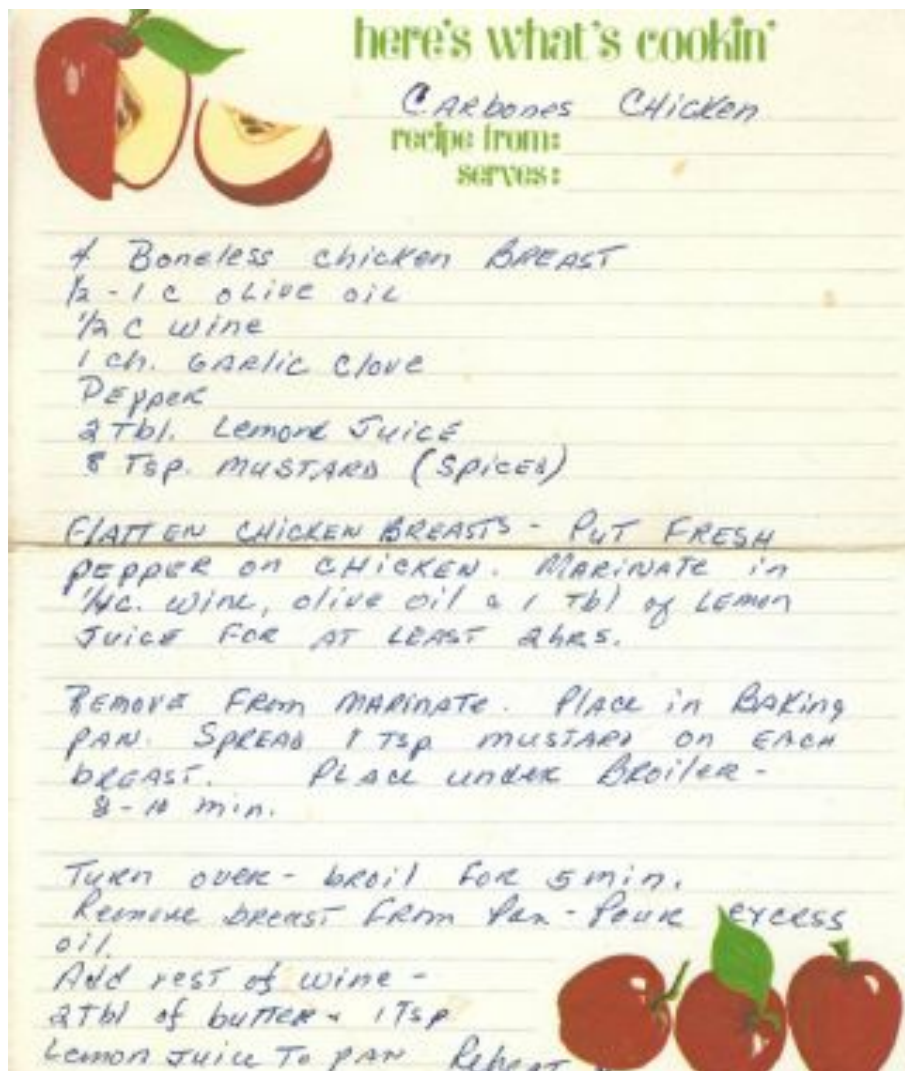 here's what's cookin'
CARbones CHicken
recipe from:
serves:
4 Boneless chicken BREAST
1/2 - 1 c oLive oiL
1/2 c wine
1 ch. GARlic Clove
PEpper
2 Tbl. Lemon Juice
8 Tsp. MUSTARD (Spiced)
FlATTEN CHICKEN BREASTS - PUT FRESH
pepper on CHICKEN. MARINATE in
1/4c. wine, olive oil & 1 Tbl of LEMON
Juice FOR AT LEAST 2 hRS.
REMOVE FRom MARINATE. PlAce in BAKing
PAN. SPREAD 1 TSp mUSTARD on EAcH
bREAST. PLAce undeR BRoileR -
8-10 min.
TuRn oveR - broil FoR 5 min.
Remove breast FRom Pan - Pour excess
oil.
Add rest of wine -
2 Tbl of butteR & 1 Tsp
Lemon Juice To pAN Reheat